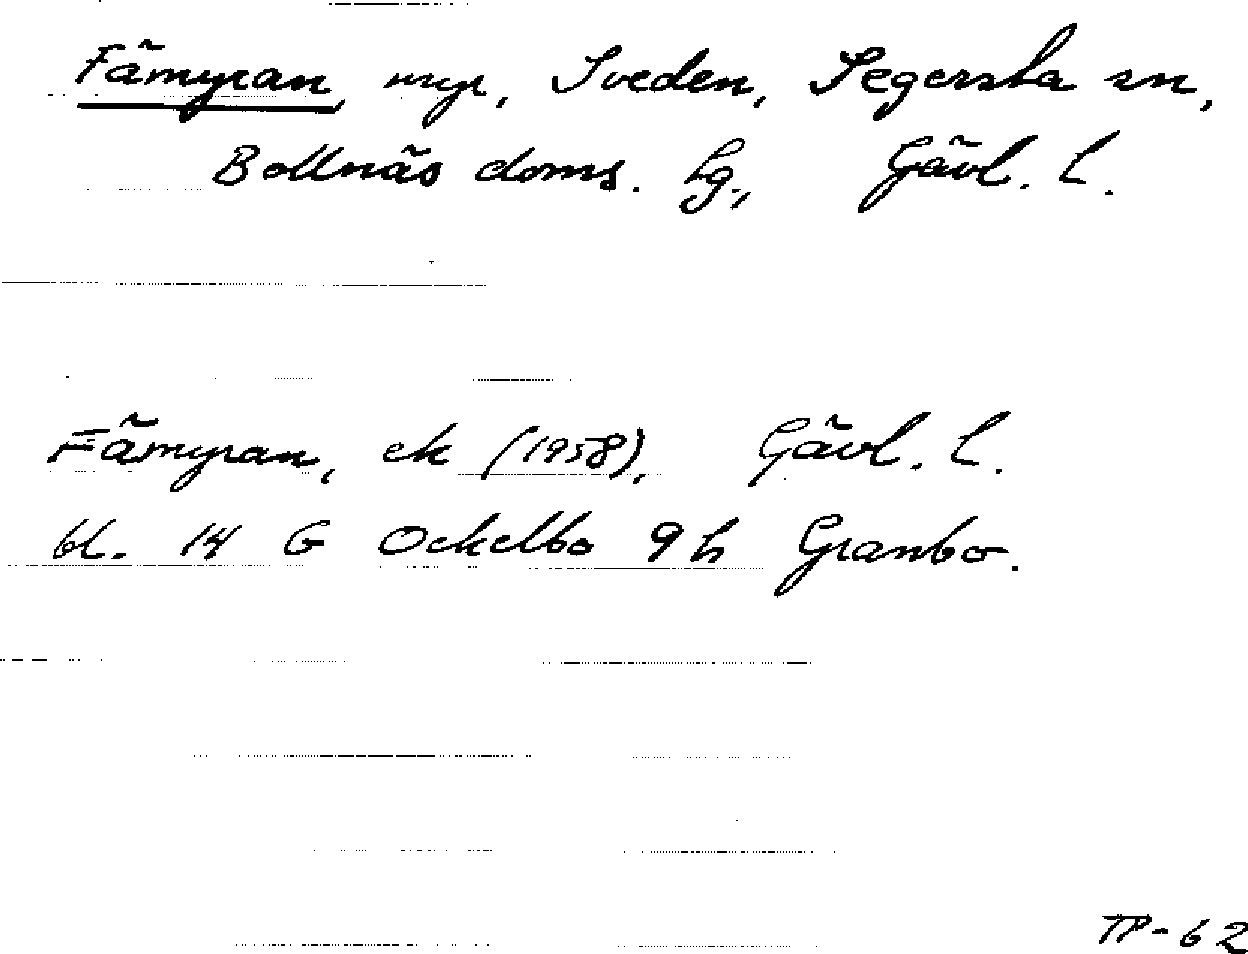 Fämyran, myr, Sveden, Segersta sn,
Bollnäs doms. Lg., Gävl. l.
Fämyran, ek (1958), Gävl. l.
bl. 14 G Ockelbo 9 h Granbo.
TP-62